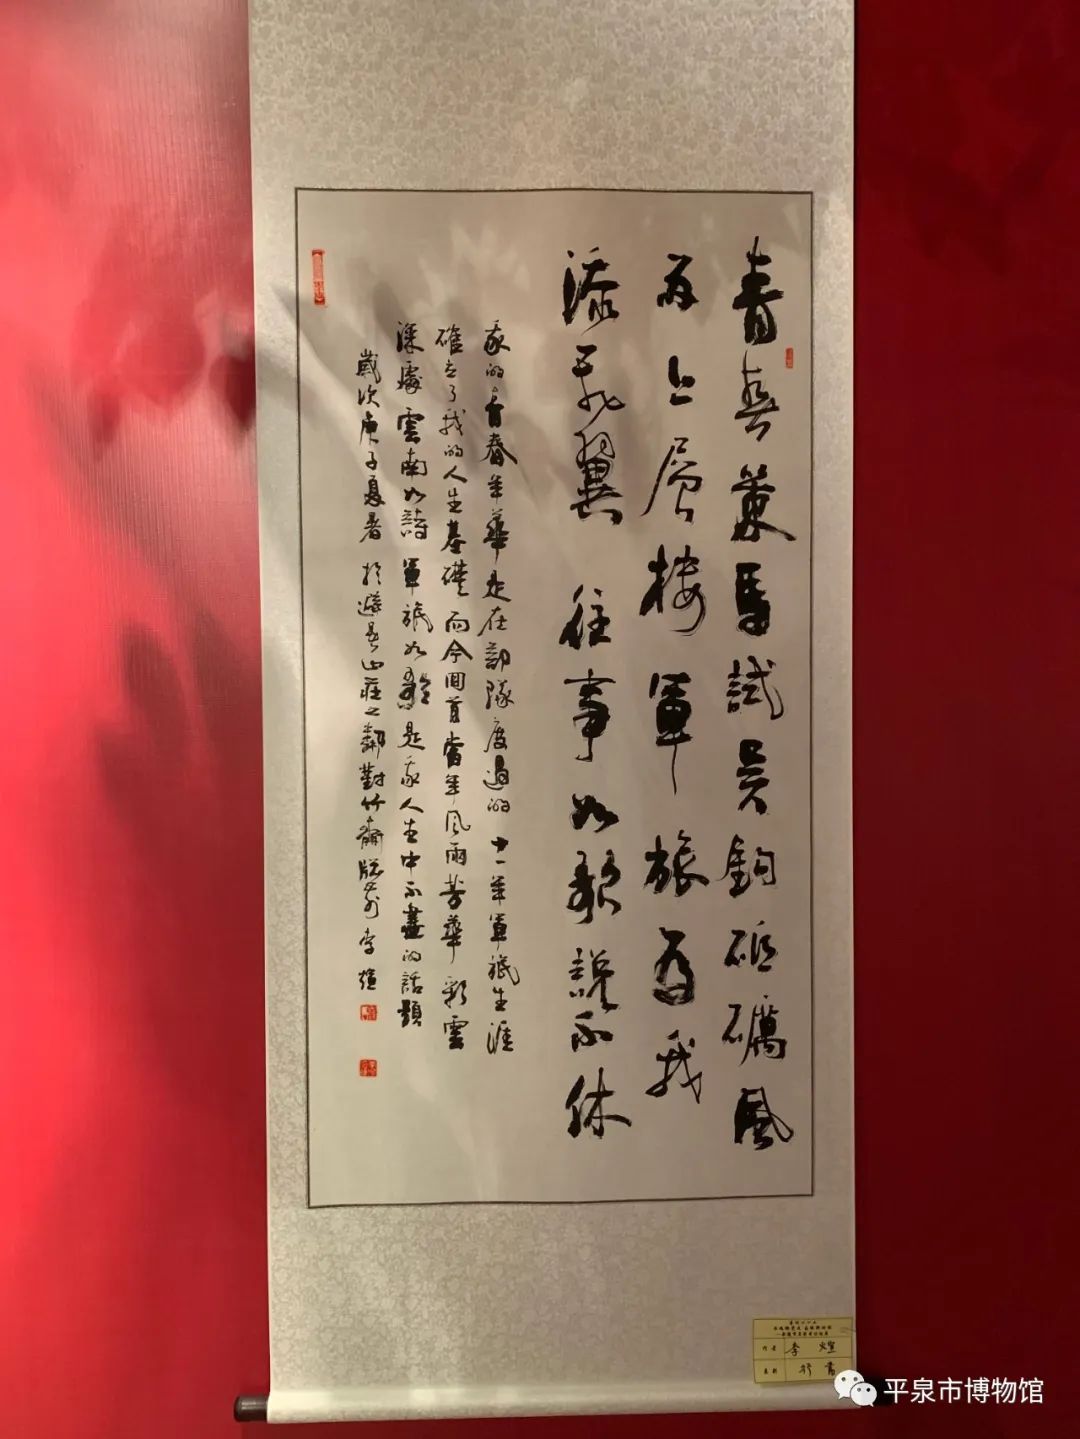 青春策馬試吳鉤砥礪風
雨上層樓軍旅為我
添羽翼往事如歌說不休
我的青春年華是在部隊度過的十一年軍旅生涯
確立了我的人生基礎而今回首當年風雨芳華彩雲
深處雲南如詩軍旅如歌是我人生中不盡的話題
歲次庚子夏暑於避暑山莊之鄰對竹齋牕前李煊
作者 李煊
行書
平泉市博物馆